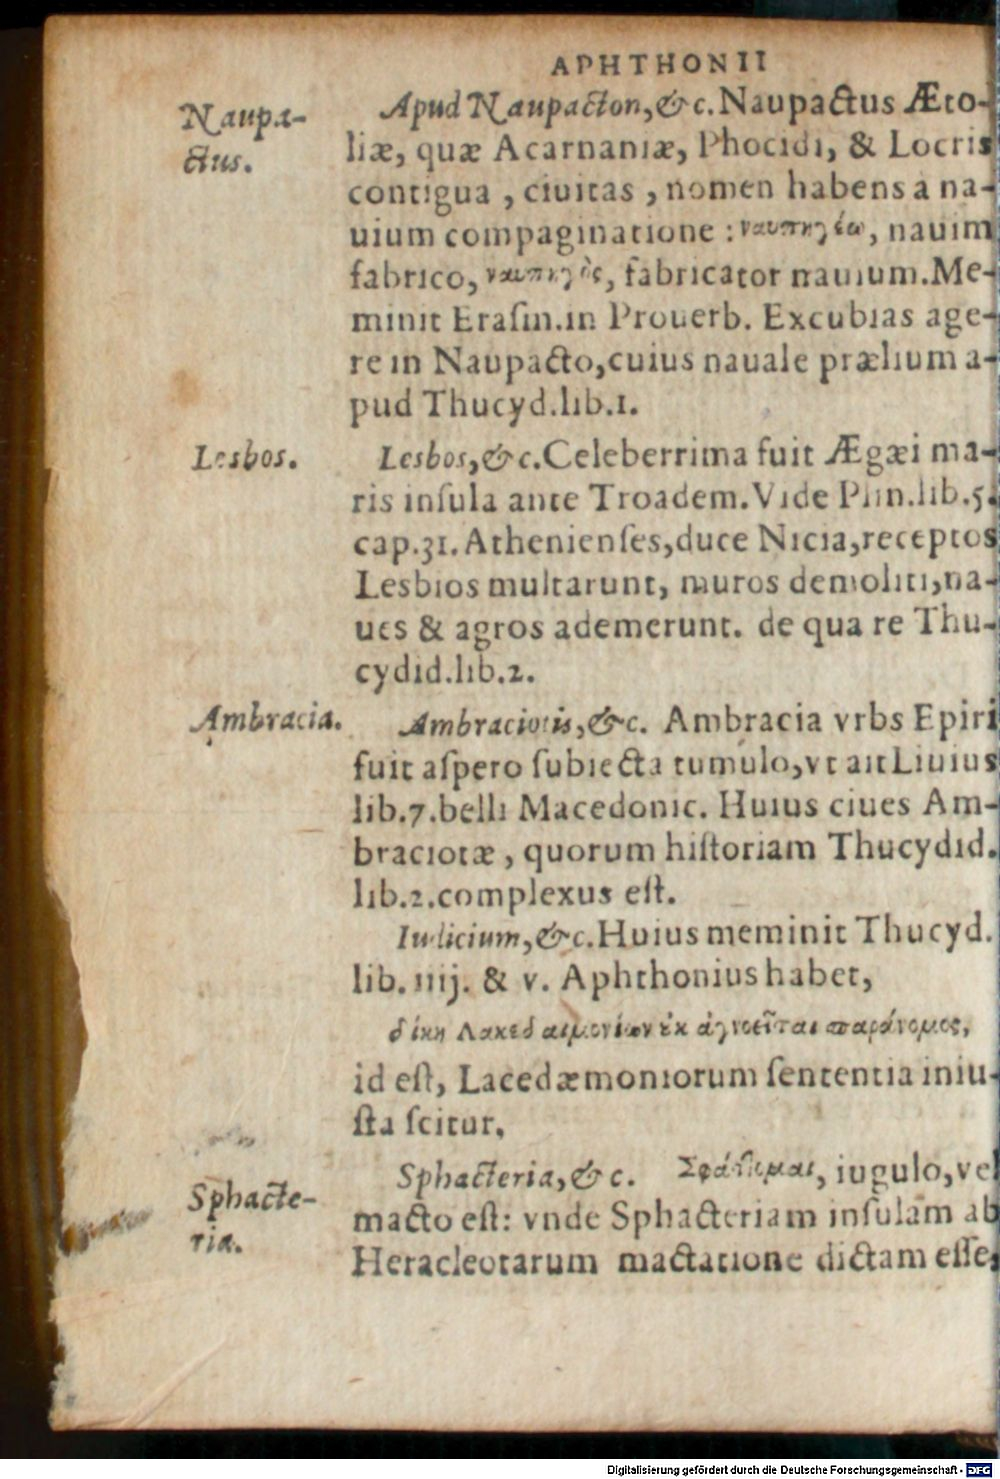 APHTHONII
Naupa-
ctus.
Apud Naupacton, &c. Naupactus Æto-
liæ, quæ Acarnaniæ, Phocidi, & Locris
contigua, ciuitas, nomen habens a na-
uium compaginatione: ναυπηγέω, nauim
fabrico, ναυπηγὸς, fabricator nauium. Me-
minit Erasm. in Prouerb. Excubias age-
re in Naupacto, cuius nauale prælium a-
pud Thucyd. lib. 1.
Lesbos.
Lesbos, &c. Celeberrima fuit Ægæi ma-
ris inſula ante Troadem. Vide Plin. lib. 5.
cap. 31. Athenienſes, duce Nicia, receptos
Lesbios multarunt, muros demoliti, na-
ues & agros ademerunt. de qua re Thu-
cydid. lib. 2.
Ambracia.
Ambraciotis, &c. Ambracia vrbs Epiri
fuit aſpero ſubiecta tumulo, vt ait Liuius
lib. 7. belli Macedonic. Huius ciues Am-
braciotæ, quorum hiſtoriam Thucydid.
lib. 2. complexus eſt.
Iudicium, &c. Huius meminit Thucyd.
lib. iiij. & v. Aphthonius habet,
δίκη Λακεδαιμονίων ἐκ ἀγνοεῖται παράνομος,
id eſt, Lacedæmoniorum ſententia iniu-
ſta ſcitur,
Sphacte-
ria.
Sphacteria, &c. iugulo, vel
macto eſt: vnde Sphacteriam inſulam ab
Heracleotarum mactatione dictam eſſe,
Digitalisierung gefördert durch die Deutsche Forschungsgemeinschaft - DFG